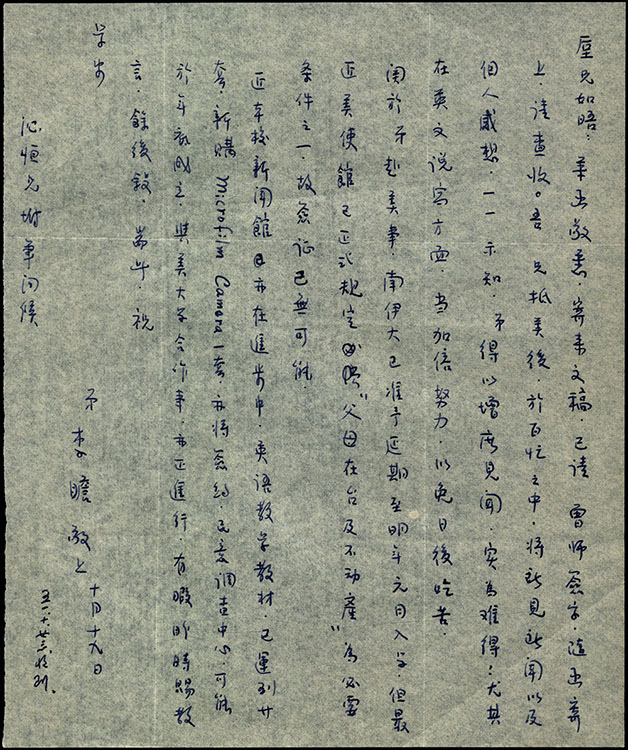 屋兄如晤：華函敬悉，寄來文稿，已請 曾師簽字，隨函寄
上，請查收。吾 兄抵美後，於百忙之中，將新見新聞以及
個人感想，一一示知，弟得以增廣見聞，實為難得！尤其
在英文說寫方面，当加倍努力，以免日後吃苦。
関於弟赴美事，南伊大已准予延期至明年元月入学，但最
近美使館已正式規定必附"父母在台及不動產"為必要
条件之一，故簽证已無可能。
近本校新聞館已亦在進步中，英語教学教材，已運到廿
套，新購 Microfilm Camera 1套亦将簽約，民意調查中心，可能
於年前成立，與美大学合作事，亦正進行，有暇即時賜教
言，餘後敍，耑此，祝
学安
弟 李瞻 敬上 十月十九日
沁恒兄附筆问候
五一.十.廿三收到、